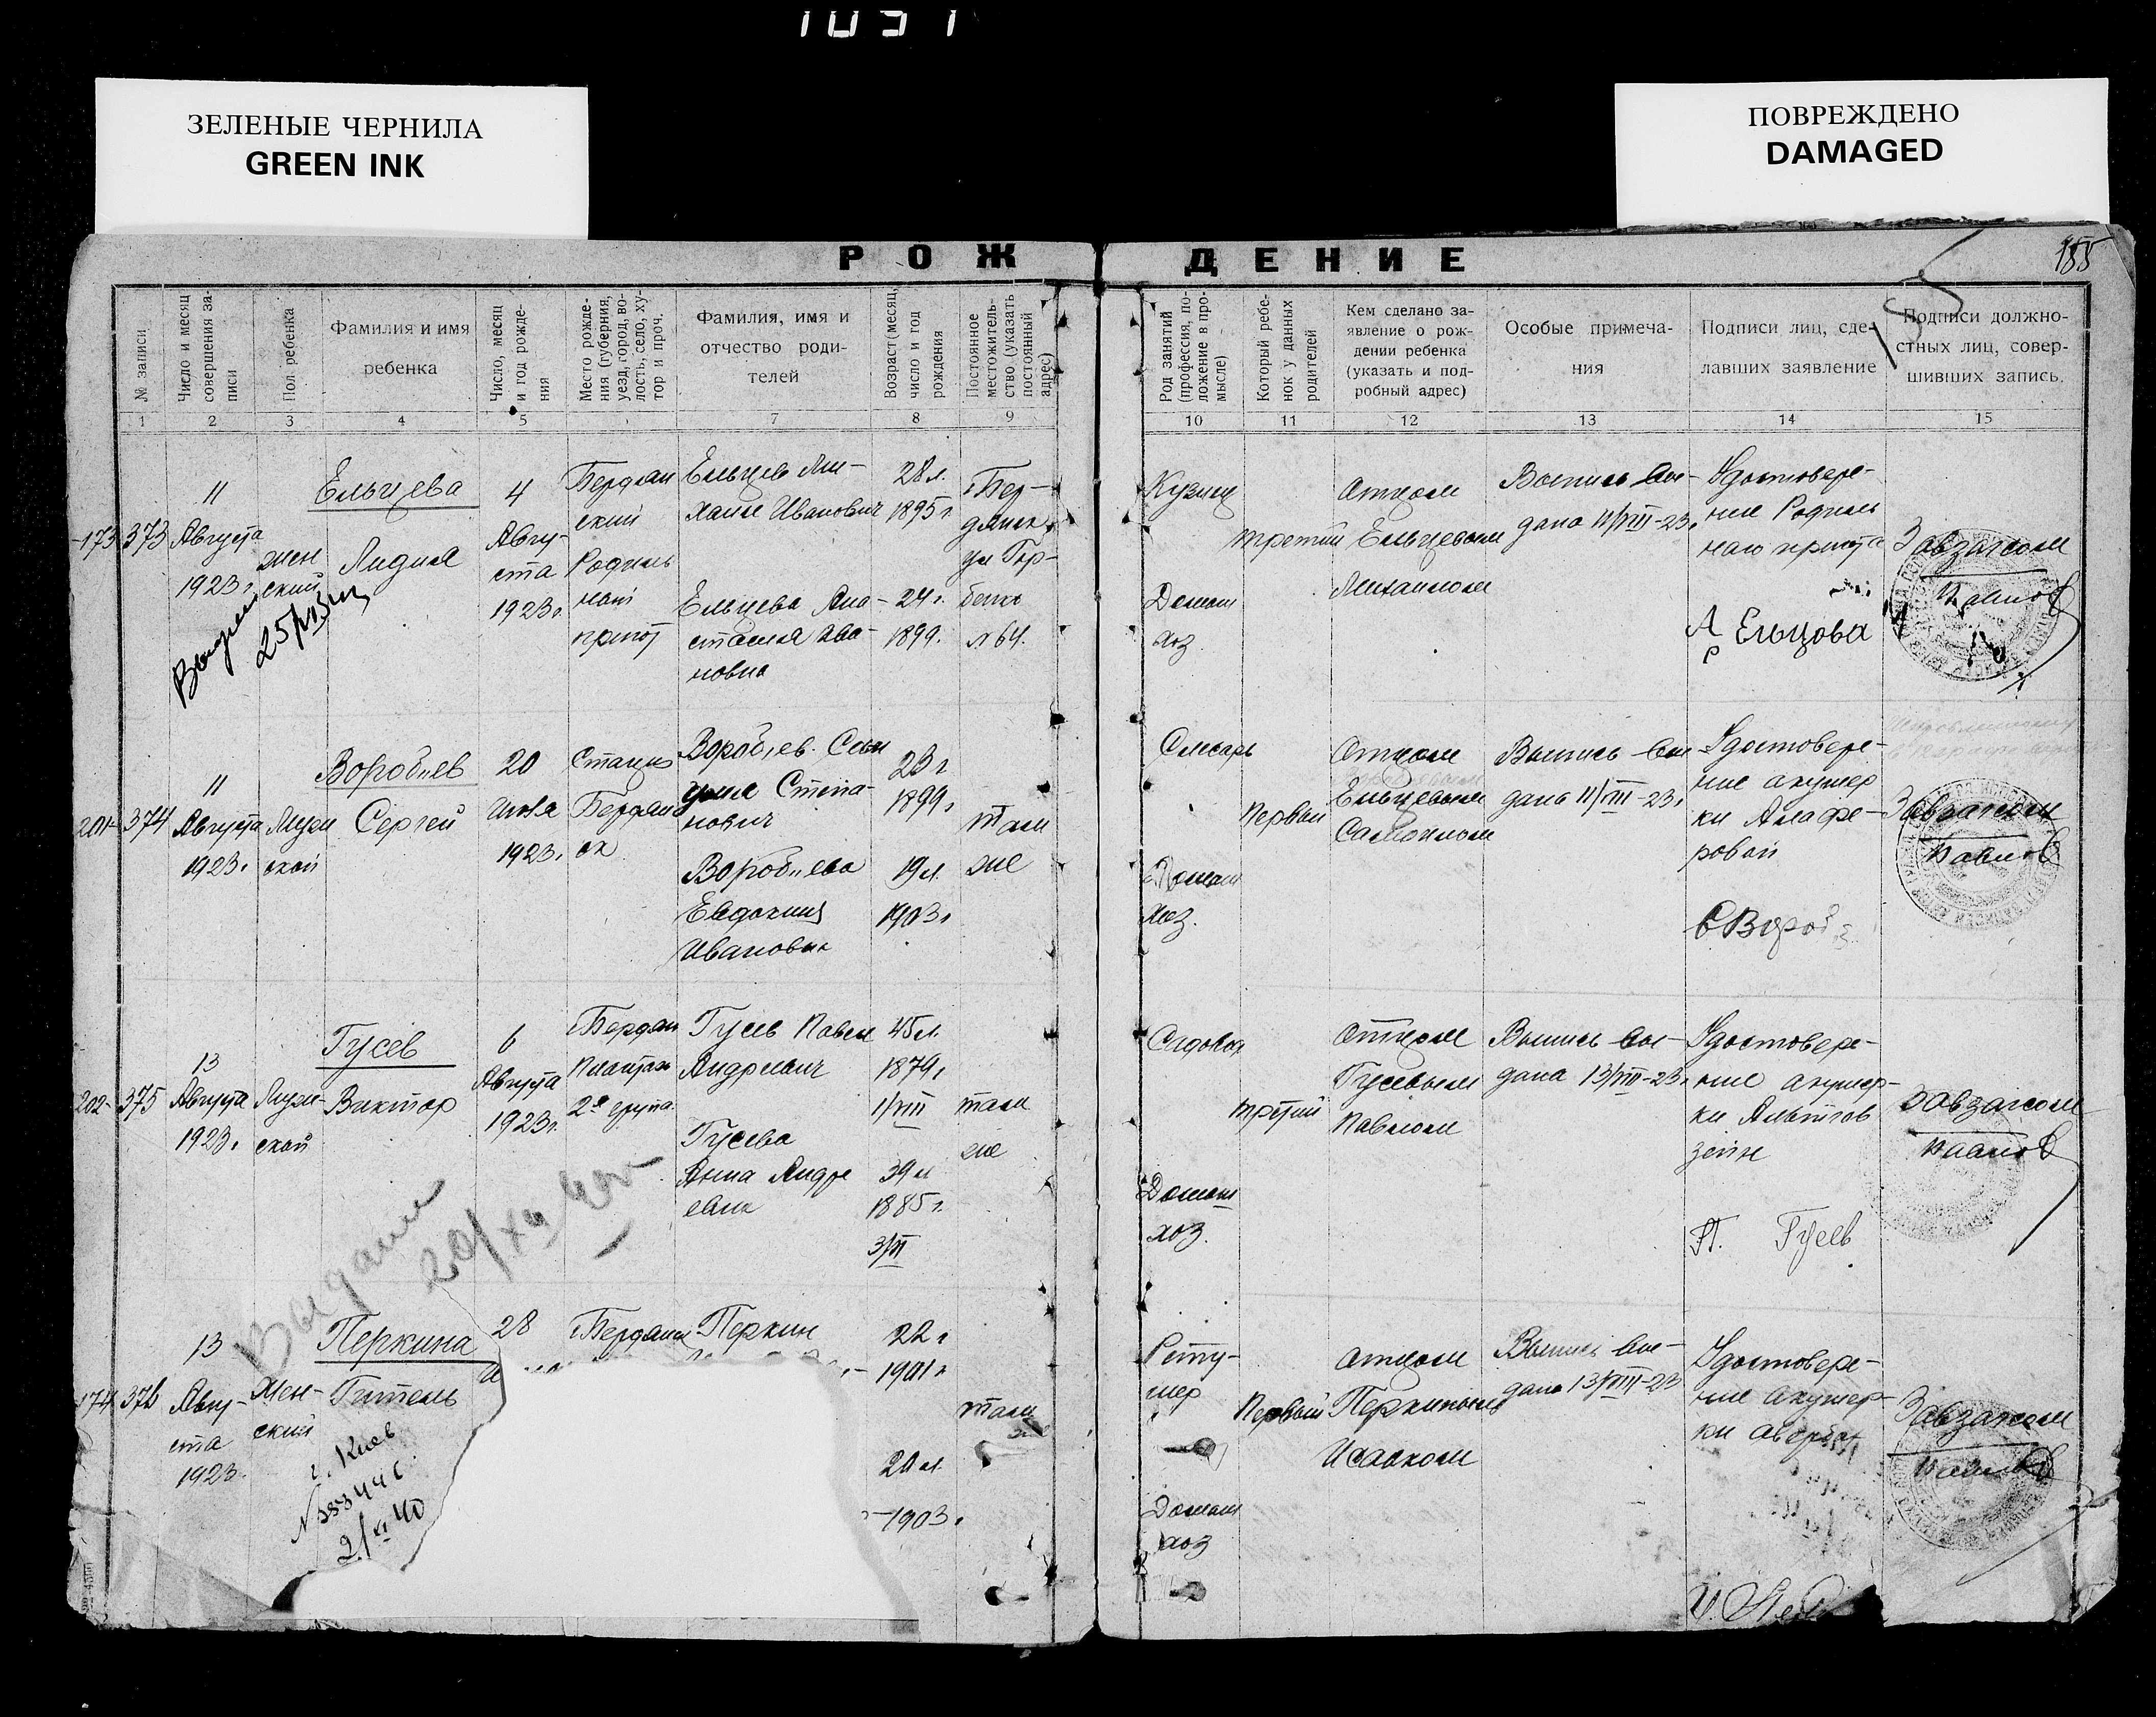 1051
ЗЕЛЕНЫЕ ЧЕРНИЛА
GREEN INK
ПОВРЕЖДЕНО
DAMAGED
РОЖДЕНИЕ
185
№ записи
Число и месяц совершения за-
писи
Пол ребенка
Фамилия и имя
ребенка
Число, месяц
и год рожде-
ния
Место рожде-
ния (губерния,
уезд, город, во-
лость, село, ху-
тор и проч.
Фамилия, имя и
отчество роди-
телей
Возраст (месяц,
число и год
рождения
Постоянное
местожитель-
ство (указать
постоянный
адрес)
Род занятий
(профессия, по-
ложение в про-
мысле)
Который ребе-
нок у данных
родителей
Кем сделано за-
явление о рож-
дении ребенка
(указать и под-
робный адрес)
Особые примеча-
ния
Подписи лиц, сде-
лавших заявление
Подписи должно-
стных лиц, совер-
шивших запись.
1 2 3 4 5 7 8 9 10 11 12 13 14 15
173
373
11
Августа
1923 г
жен
ский
Ельцева
Лидия
4
Авгу-
ста
1923 г.
Бердян
ский
Родиль
ный
приют
Ельцев Ми-
хаил Иванович
Ельцева Ана-
стасия Ива-
новна
28 л.
1895 г
24 г.
1899.
Бер-
дянск
ул Гор-
бенко
№ 64.
Кузнец
Домаш
хоз
третий
Отцом
Ельцевым
Михаилом
Выпись вы-
дана 11/VIII-23г
Удостовере-
ние Родиль
наго приюта
А Ельцова
Завзагсом
Павлов
201
374
11
Августа
1923 г
Муж
ской
Воробьев
Сергей
20
Июля
1923 г
Станция
Бердян
ск
Воробьев
Степа-
нович
Воробьева
Евдокия
Ивановна
23 г
1899 г
19 л.
1903 г
там
же
Слесарь
Домаш
хоз.
Первый
Отцом
Ельцевым
Самоилом
Выпись вы
дана 11/VIII-23г
Удостовере-
ние акушер
ки Алафе-
ровой
Завзагсом
Павлов
202
375
13
Августа
1923 г
Муж-
ской
Гусев
Виктор
6
Августа
1923 г.
Бердян
Плантаж
2я група
Гусев Павел
Андреевич
Гусева
Анна Андре
евна
45 л.
1879 г
1/VIII
39 л
1885 г.
3/VI
там
же
Садовод
Домаш
хоз.
третий
Отцом
Гусевым
Павлом
Выпись вы-
дана 13/VIII-23г
Удостовере-
ние акушер-
ки Альтгов
зейн
П. Гусев
Завзагсом
Павлов
174
376
13
Авгу-
ста
1923
Жен-
ский
Перкина
Гитель
г. Киев
28
Бердянск
Перкин
22 г
1901 г
20 л.
1903 г
там
Рету-
шер
Домаш
хоз
Первый
Отцом
Перкиным
Исааком
Выпись вы-
дана 13/VIII-23
Удостовере-
ние акушер-
ки
Завзагсом
Павлов